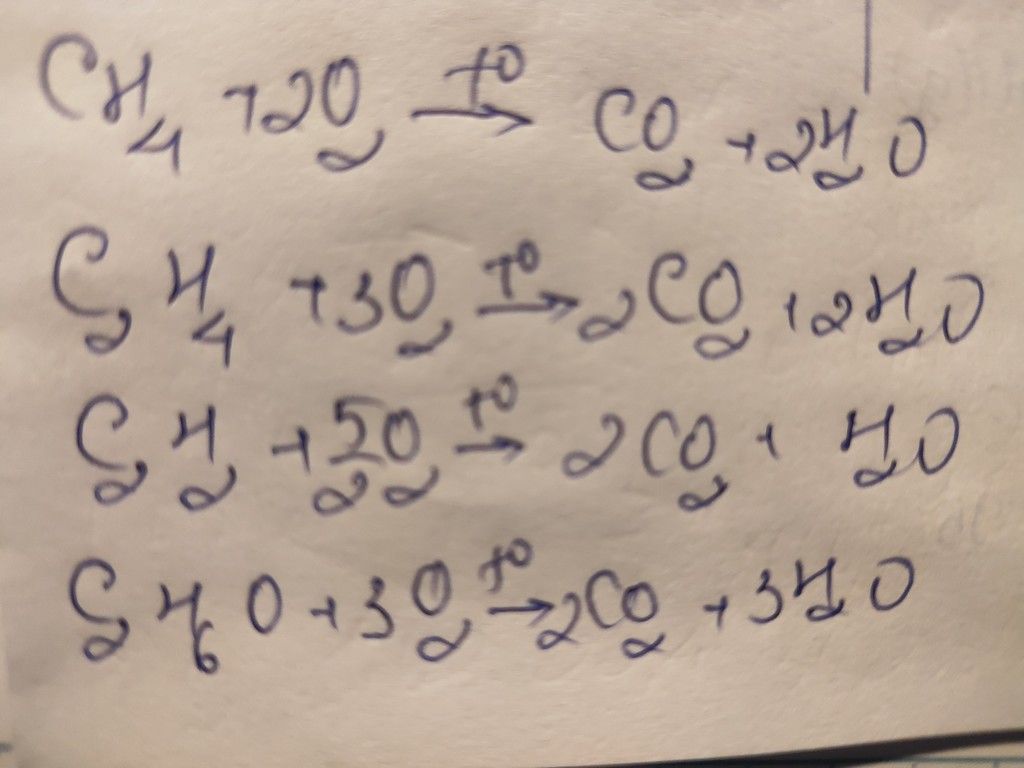 CH₄ + 2O₂ \xrightarrow{t^0} CO₂ + 2H₂O
C₂H₄ + 3O₂ \xrightarrow{t^0} 2CO₂ + 2H₂O
C₂H₂ + \frac{5}{2}O₂ \xrightarrow{t^0} 2CO₂ + H₂O
C₂H₆O + 3O₂ \xrightarrow{t^0} 2CO₂ + 3H₂O